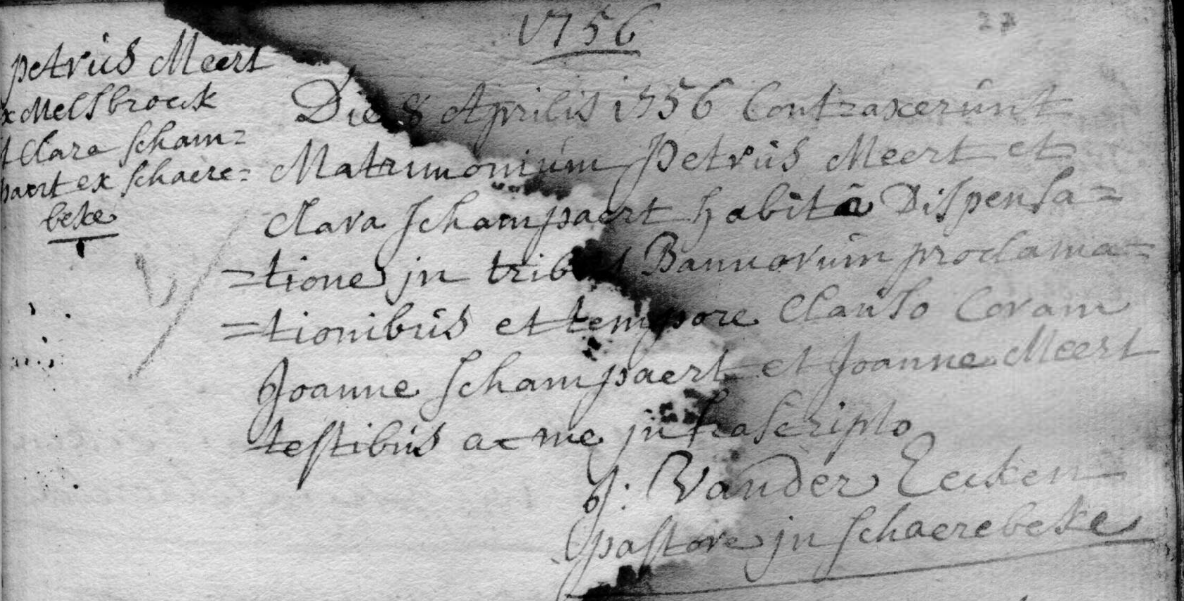 1756
27
petrus Meert
ex Melsbroeck
et Clara scham=
paert ex schaere=
beke
Die 8 Aprilis 1756 Contraxerunt
Matrimonium Petrus Meert et
Clara schampaert habitâ Dispensa=
=tione in tribus Bannorum proclama=
=tionibus et tempore Clauso Coram
Joanne schampaert et Joanne Meert
testibus ac me infrascripto
J. Vander Eecken
pastore in schaerebeke